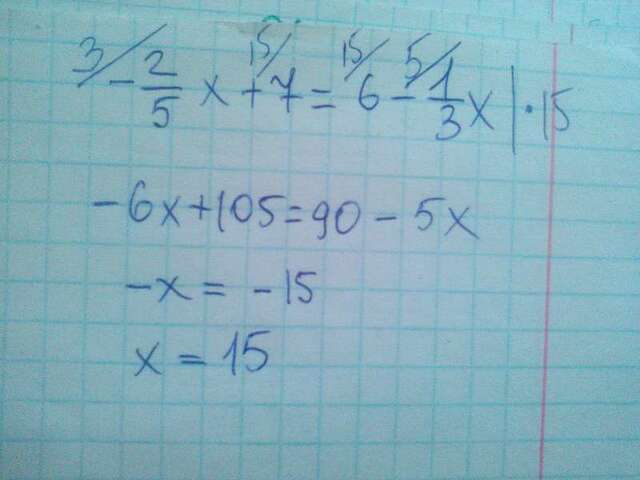 3/ -2/5 x 15/ +7 = 15/ 6 - 5/ 1/3 x | · 15
-6x+105=90-5x
-x = -15
x = 15